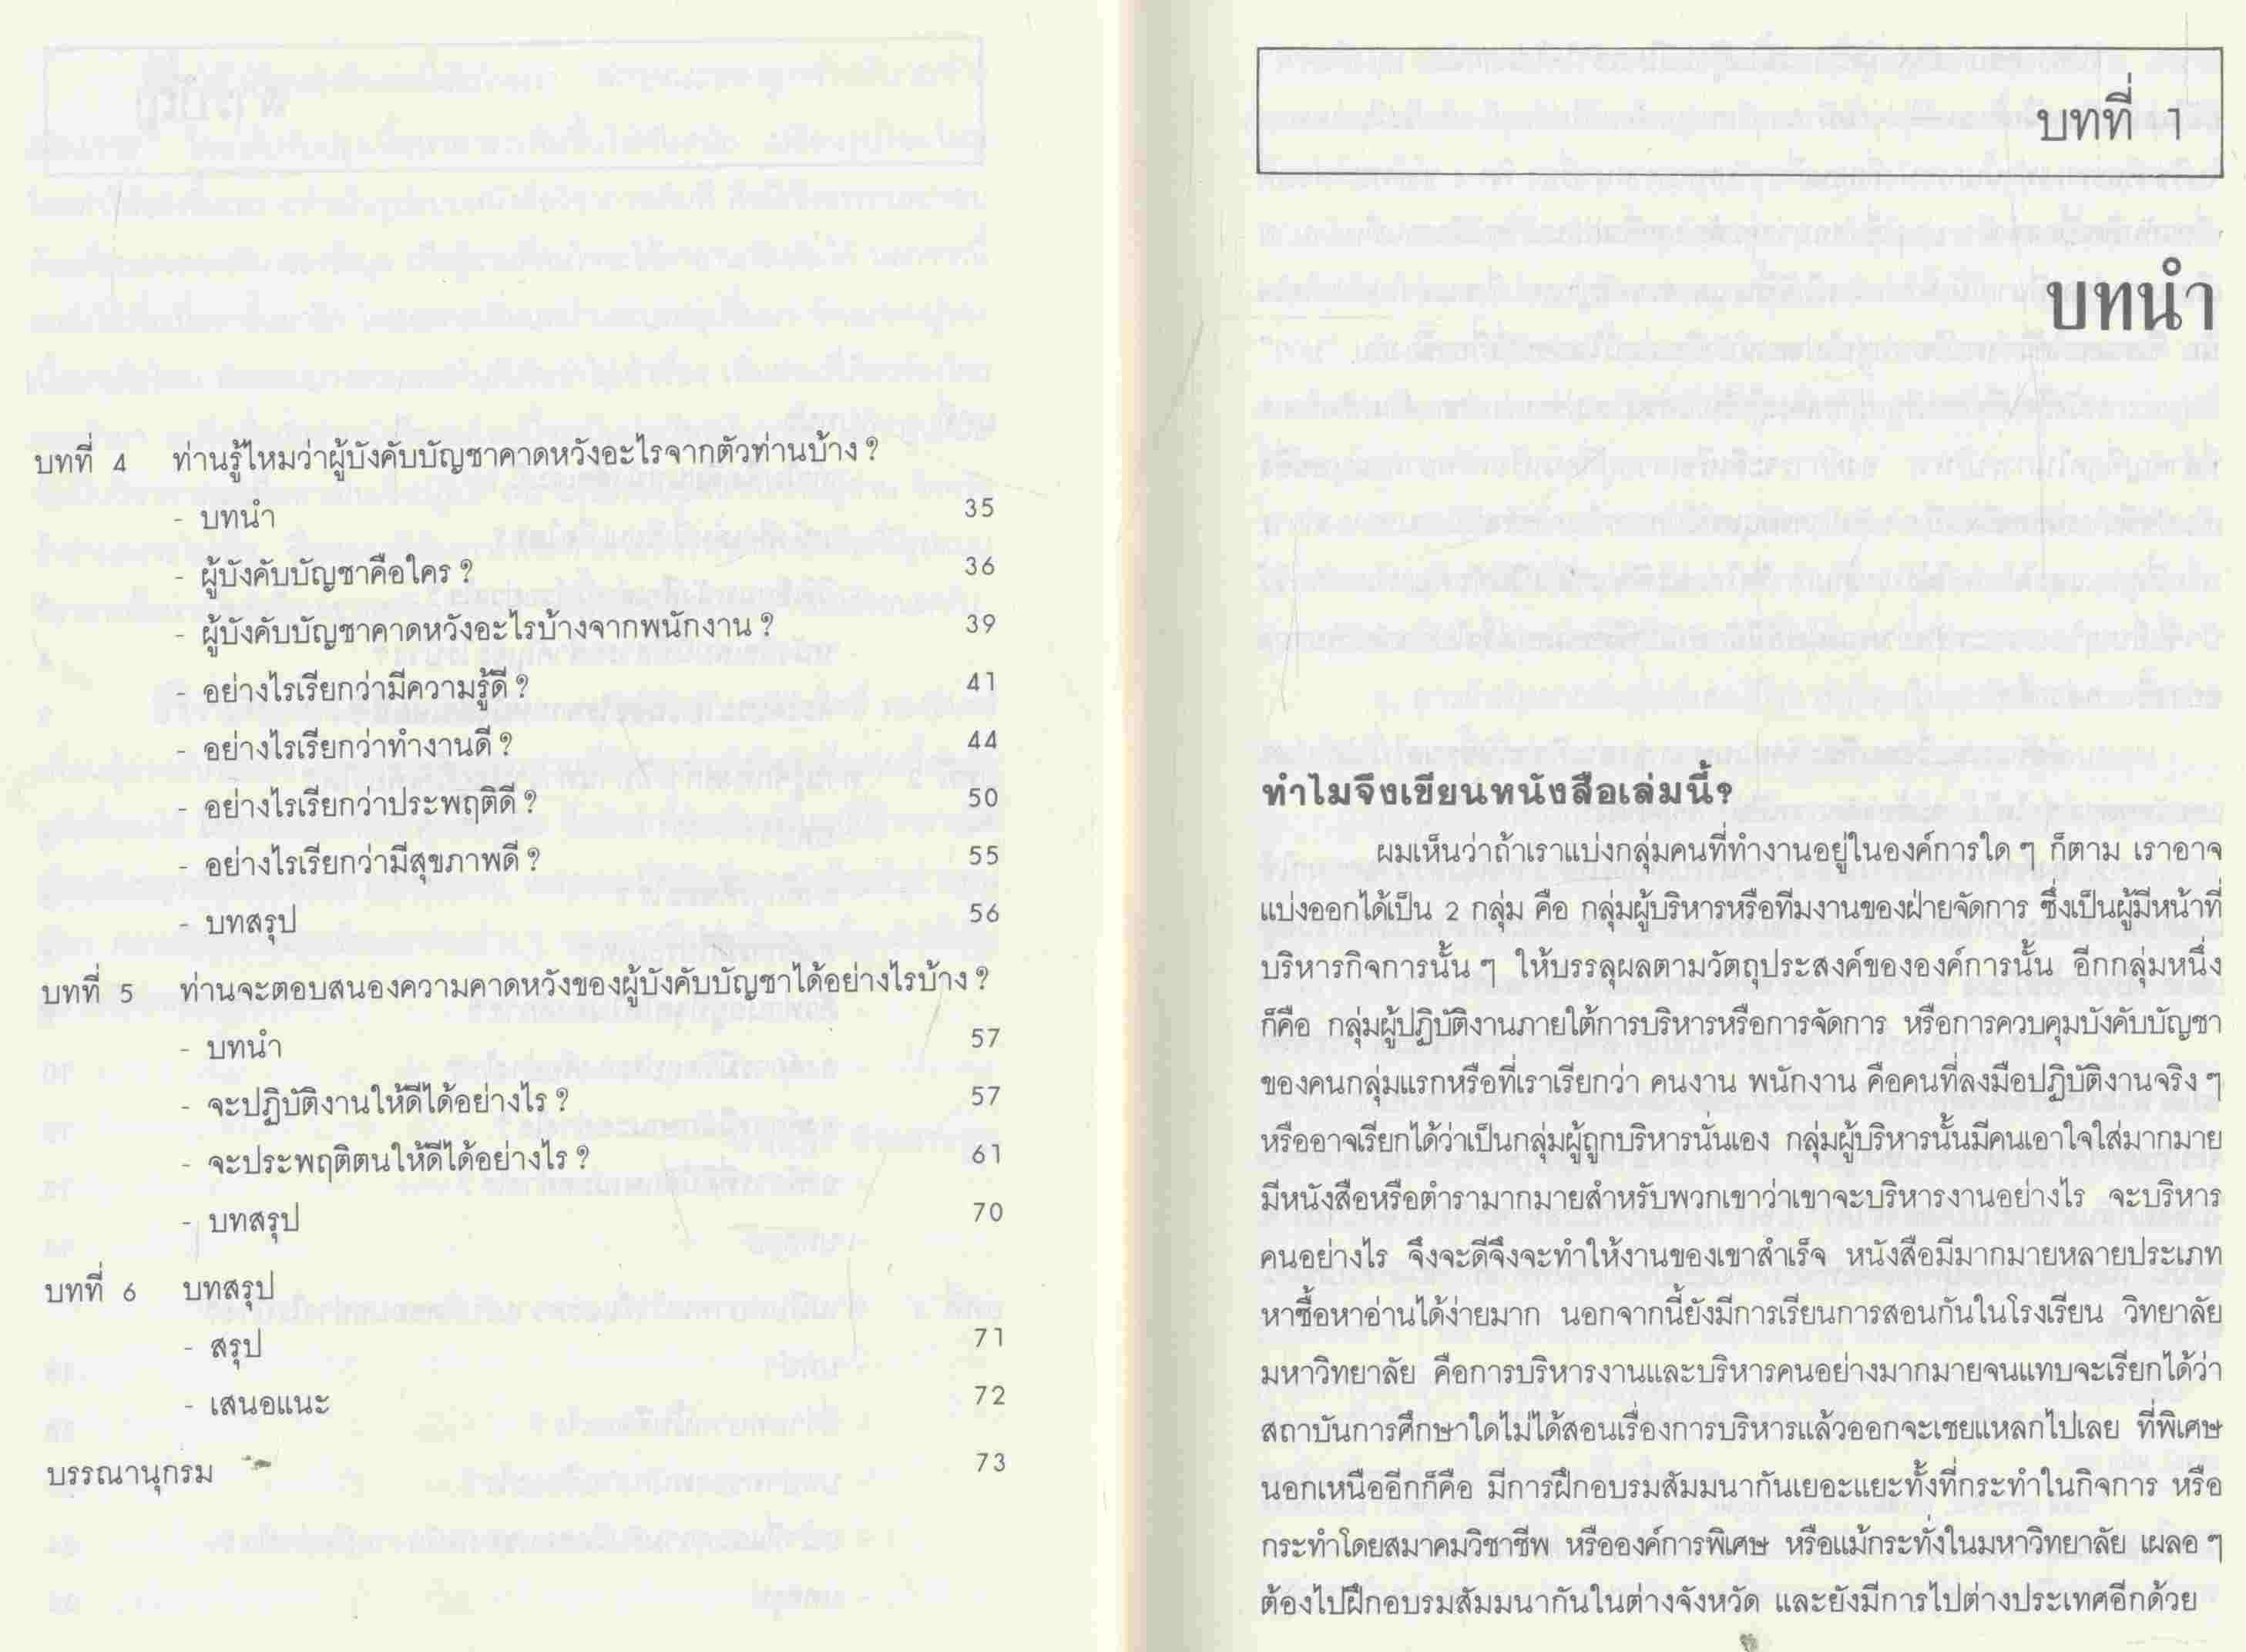 บทที่ 4 ท่านรู้ไหมว่าผู้บังคับบัญชาคาดหวังอะไรจากตัวท่านบ้าง ?
- บทนำ 35
- ผู้บังคับบัญชาคือใคร ? 36
- ผู้บังคับบัญชาคาดหวังอะไรบ้างจากพนักงาน ? 39
- อย่างไรเรียกว่ามีความรู้ดี ? 41
- อย่างไรเรียกว่าทำงานดี ? 44
- อย่างไรเรียกว่าประพฤติดี ? 50
- อย่างไรเรียกว่ามีสุขภาพดี ? 55
- บทสรุป 56
บทที่ 5 ท่านจะตอบสนองความคาดหวังของผู้บังคับบัญชาได้อย่างไรบ้าง ?
- บทนำ 57
- จะปฏิบัติงานให้ดีได้อย่างไร ? 57
- จะประพฤติตนให้ดีได้อย่างไร ? 61
- บทสรุป 70
บทที่ 6 บทสรุป
- สรุป 71
- เสนอแนะ 72
บรรณานุกรม 73
บทที่ 1
บทนำ
ทำไมจึงเขียนหนังสือเล่มนี้?
ผมเห็นว่าถ้าเราแบ่งกลุ่มคนที่ทำงานอยู่ในองค์การใด ๆ ก็ตาม เราอาจ
แบ่งออกได้เป็น 2 กลุ่ม คือ กลุ่มผู้บริหารหรือทีมงานของฝ่ายจัดการ ซึ่งเป็นผู้มีหน้าที่
บริหารกิจการนั้น ๆ ให้บรรลุผลตามวัตถุประสงค์ขององค์การนั้น อีกกลุ่มหนึ่ง
ก็คือ กลุ่มผู้ปฏิบัติงานภายใต้การบริหารหรือการจัดการ หรือการควบคุมบังคับบัญชา
ของคนกลุ่มแรกหรือที่เราเรียกว่า คนงาน พนักงาน คือคนที่ลงมือปฏิบัติงานจริง ๆ
หรืออาจเรียกได้ว่าเป็นกลุ่มผู้ถูกบริหารนั่นเอง กลุ่มผู้บริหารนั้นมีคนเอาใจใส่มากมาย
มีหนังสือหรือตำรามากมายสำหรับพวกเขาว่าเขาจะบริหารงานอย่างไร จะบริหาร
คนอย่างไร จึงจะดีจึงจะทำให้งานของเขาสำเร็จ หนังสือมีมากมายหลายประเภท
หาซื้อหาอ่านได้ง่ายมาก นอกจากนี้ยังมีการเรียนการสอนกันในโรงเรียน วิทยาลัย
มหาวิทยาลัย คือการบริหารงานและบริหารคนอย่างมากมายจนแทบจะเรียกได้ว่า
สถาบันการศึกษาใดไม่ได้สอนเรื่องการบริหารแล้วออกจะเชยแหลกไปเลย ที่พิเศษ
นอกเหนืออีกก็คือ มีการฝึกอบรมสัมมนากันเยอะแยะทั้งที่กระทำในกิจการ หรือ
กระทำโดยสมาคมวิชาชีพ หรือองค์การพิเศษ หรือแม้กระทั่งในมหาวิทยาลัย เผลอ ๆ
ต้องไปฝึกอบรมสัมมนากันในต่างจังหวัด และยังมีการไปต่างประเทศอีกด้วย